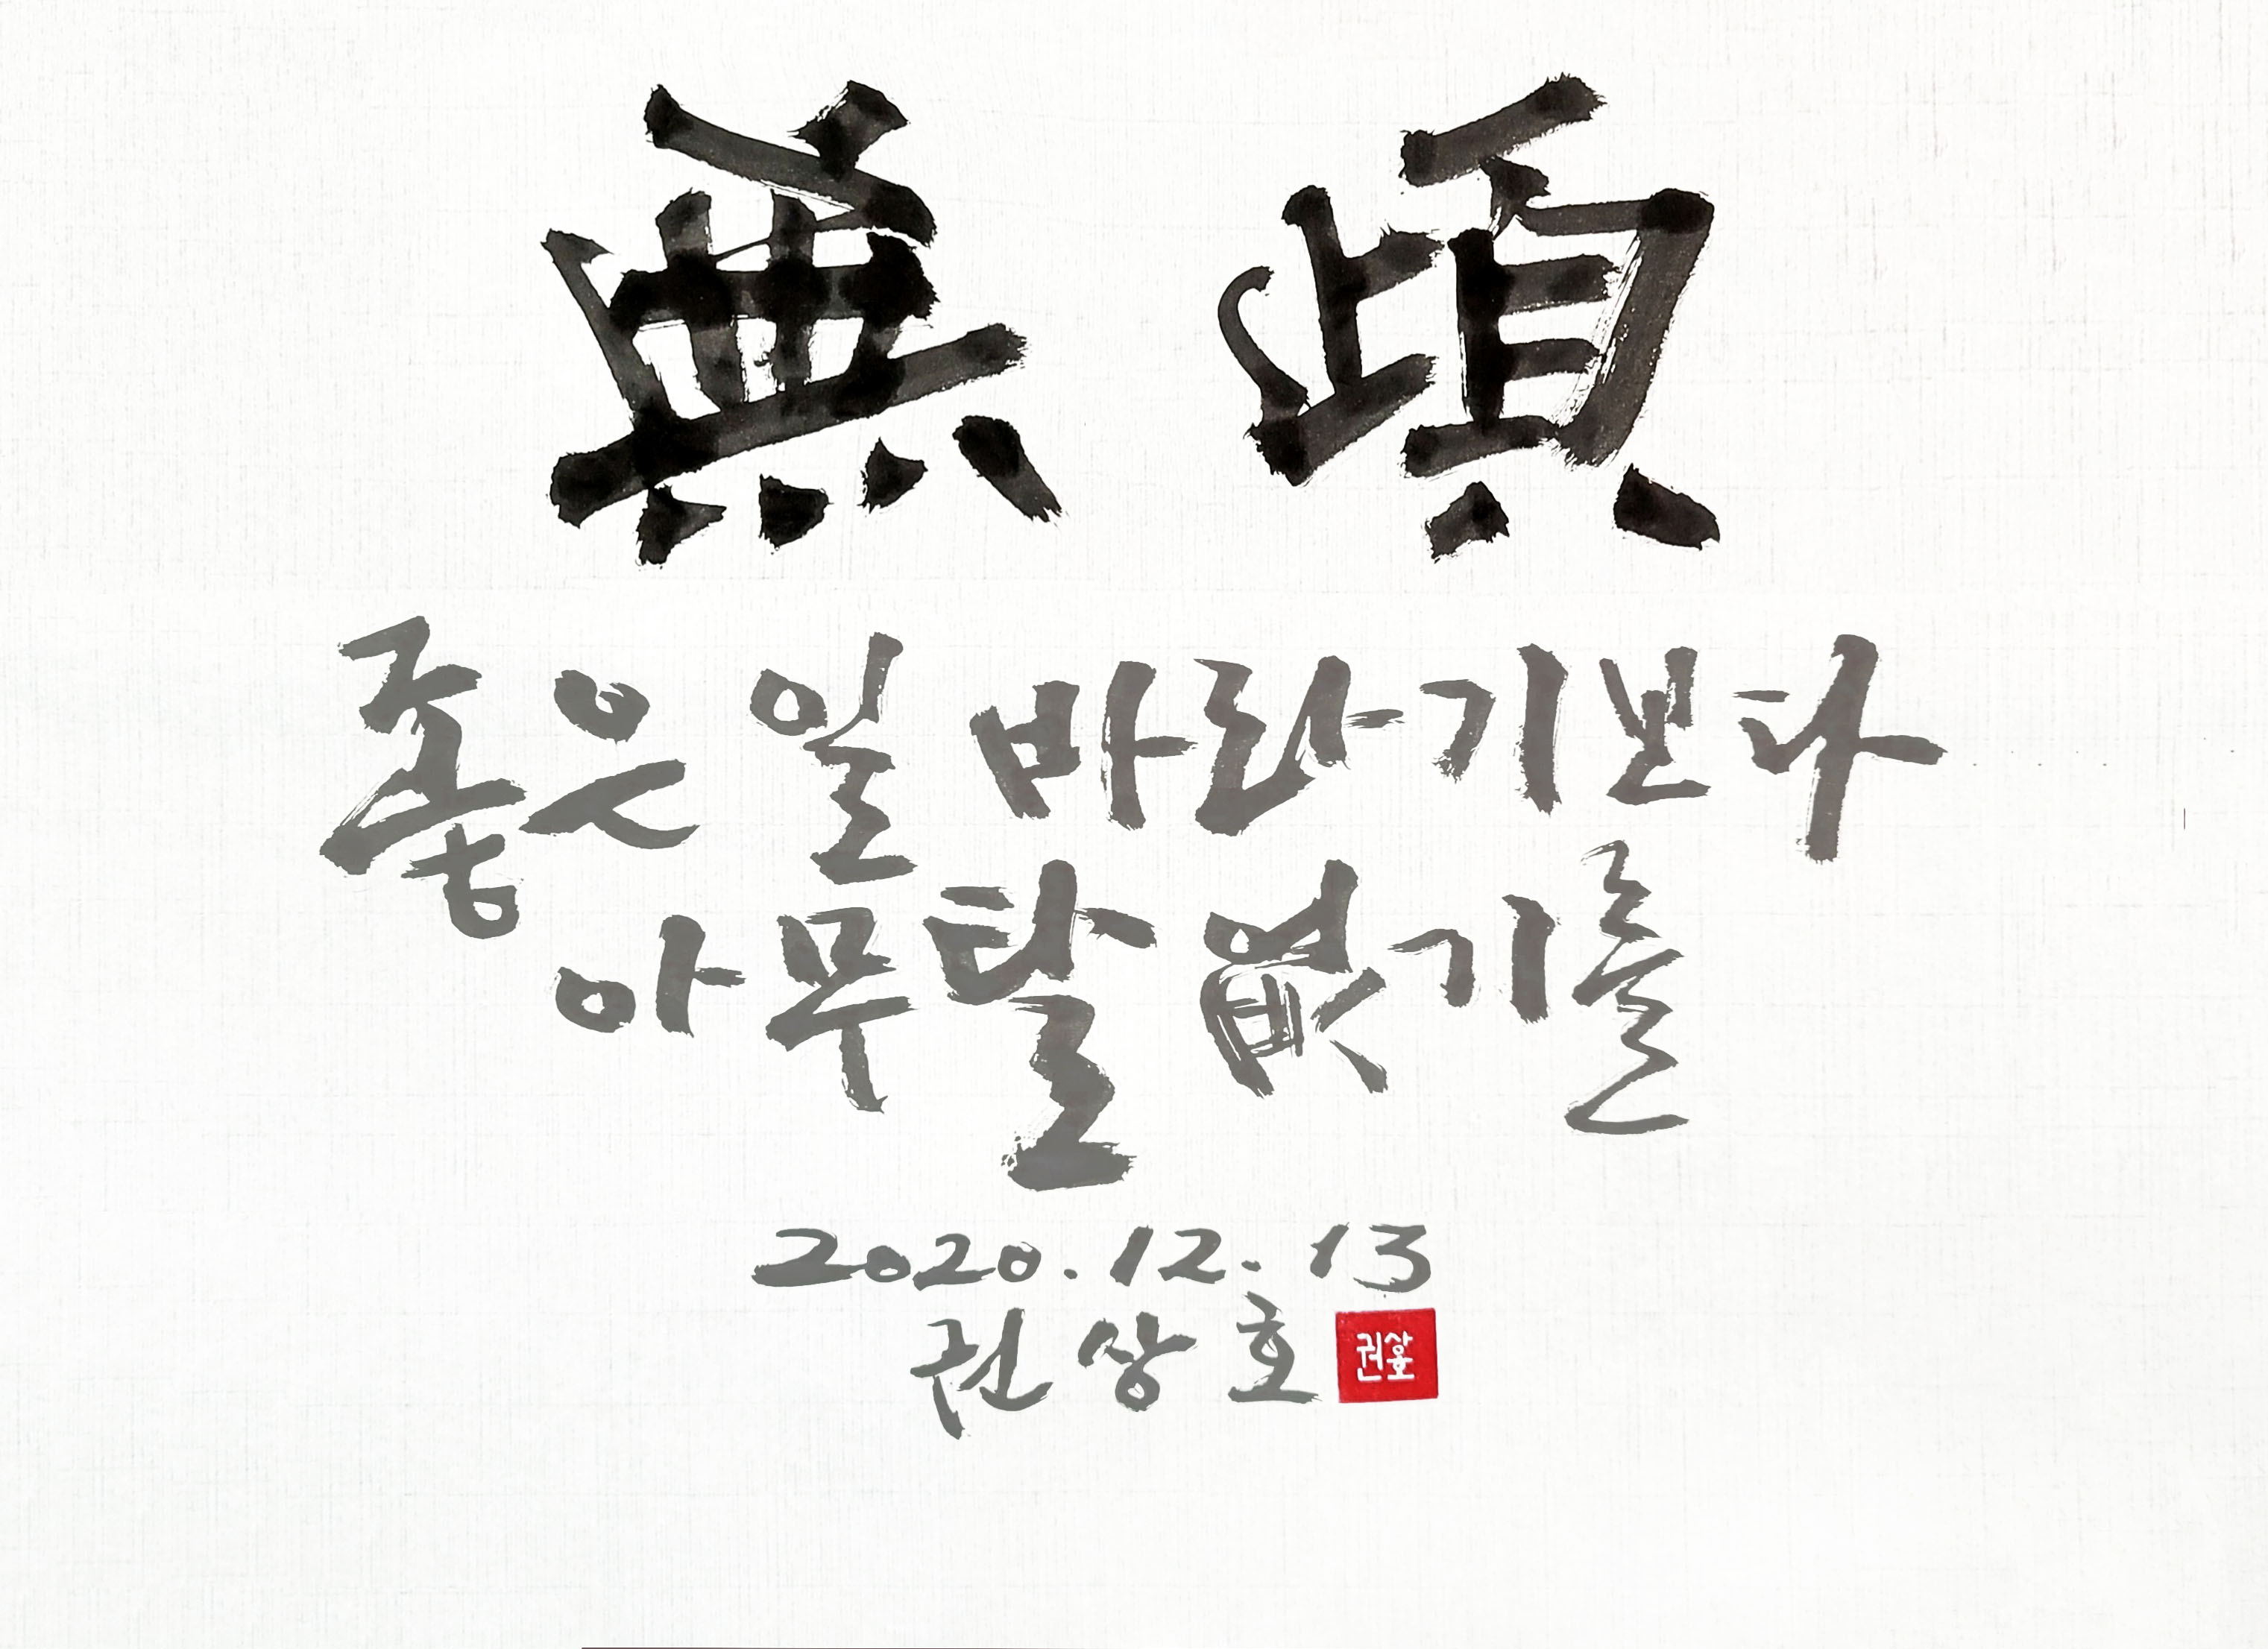 無頉
좋은 일 바라기보다
아무 탈 없기를
2020.12.13
권상호 권상호